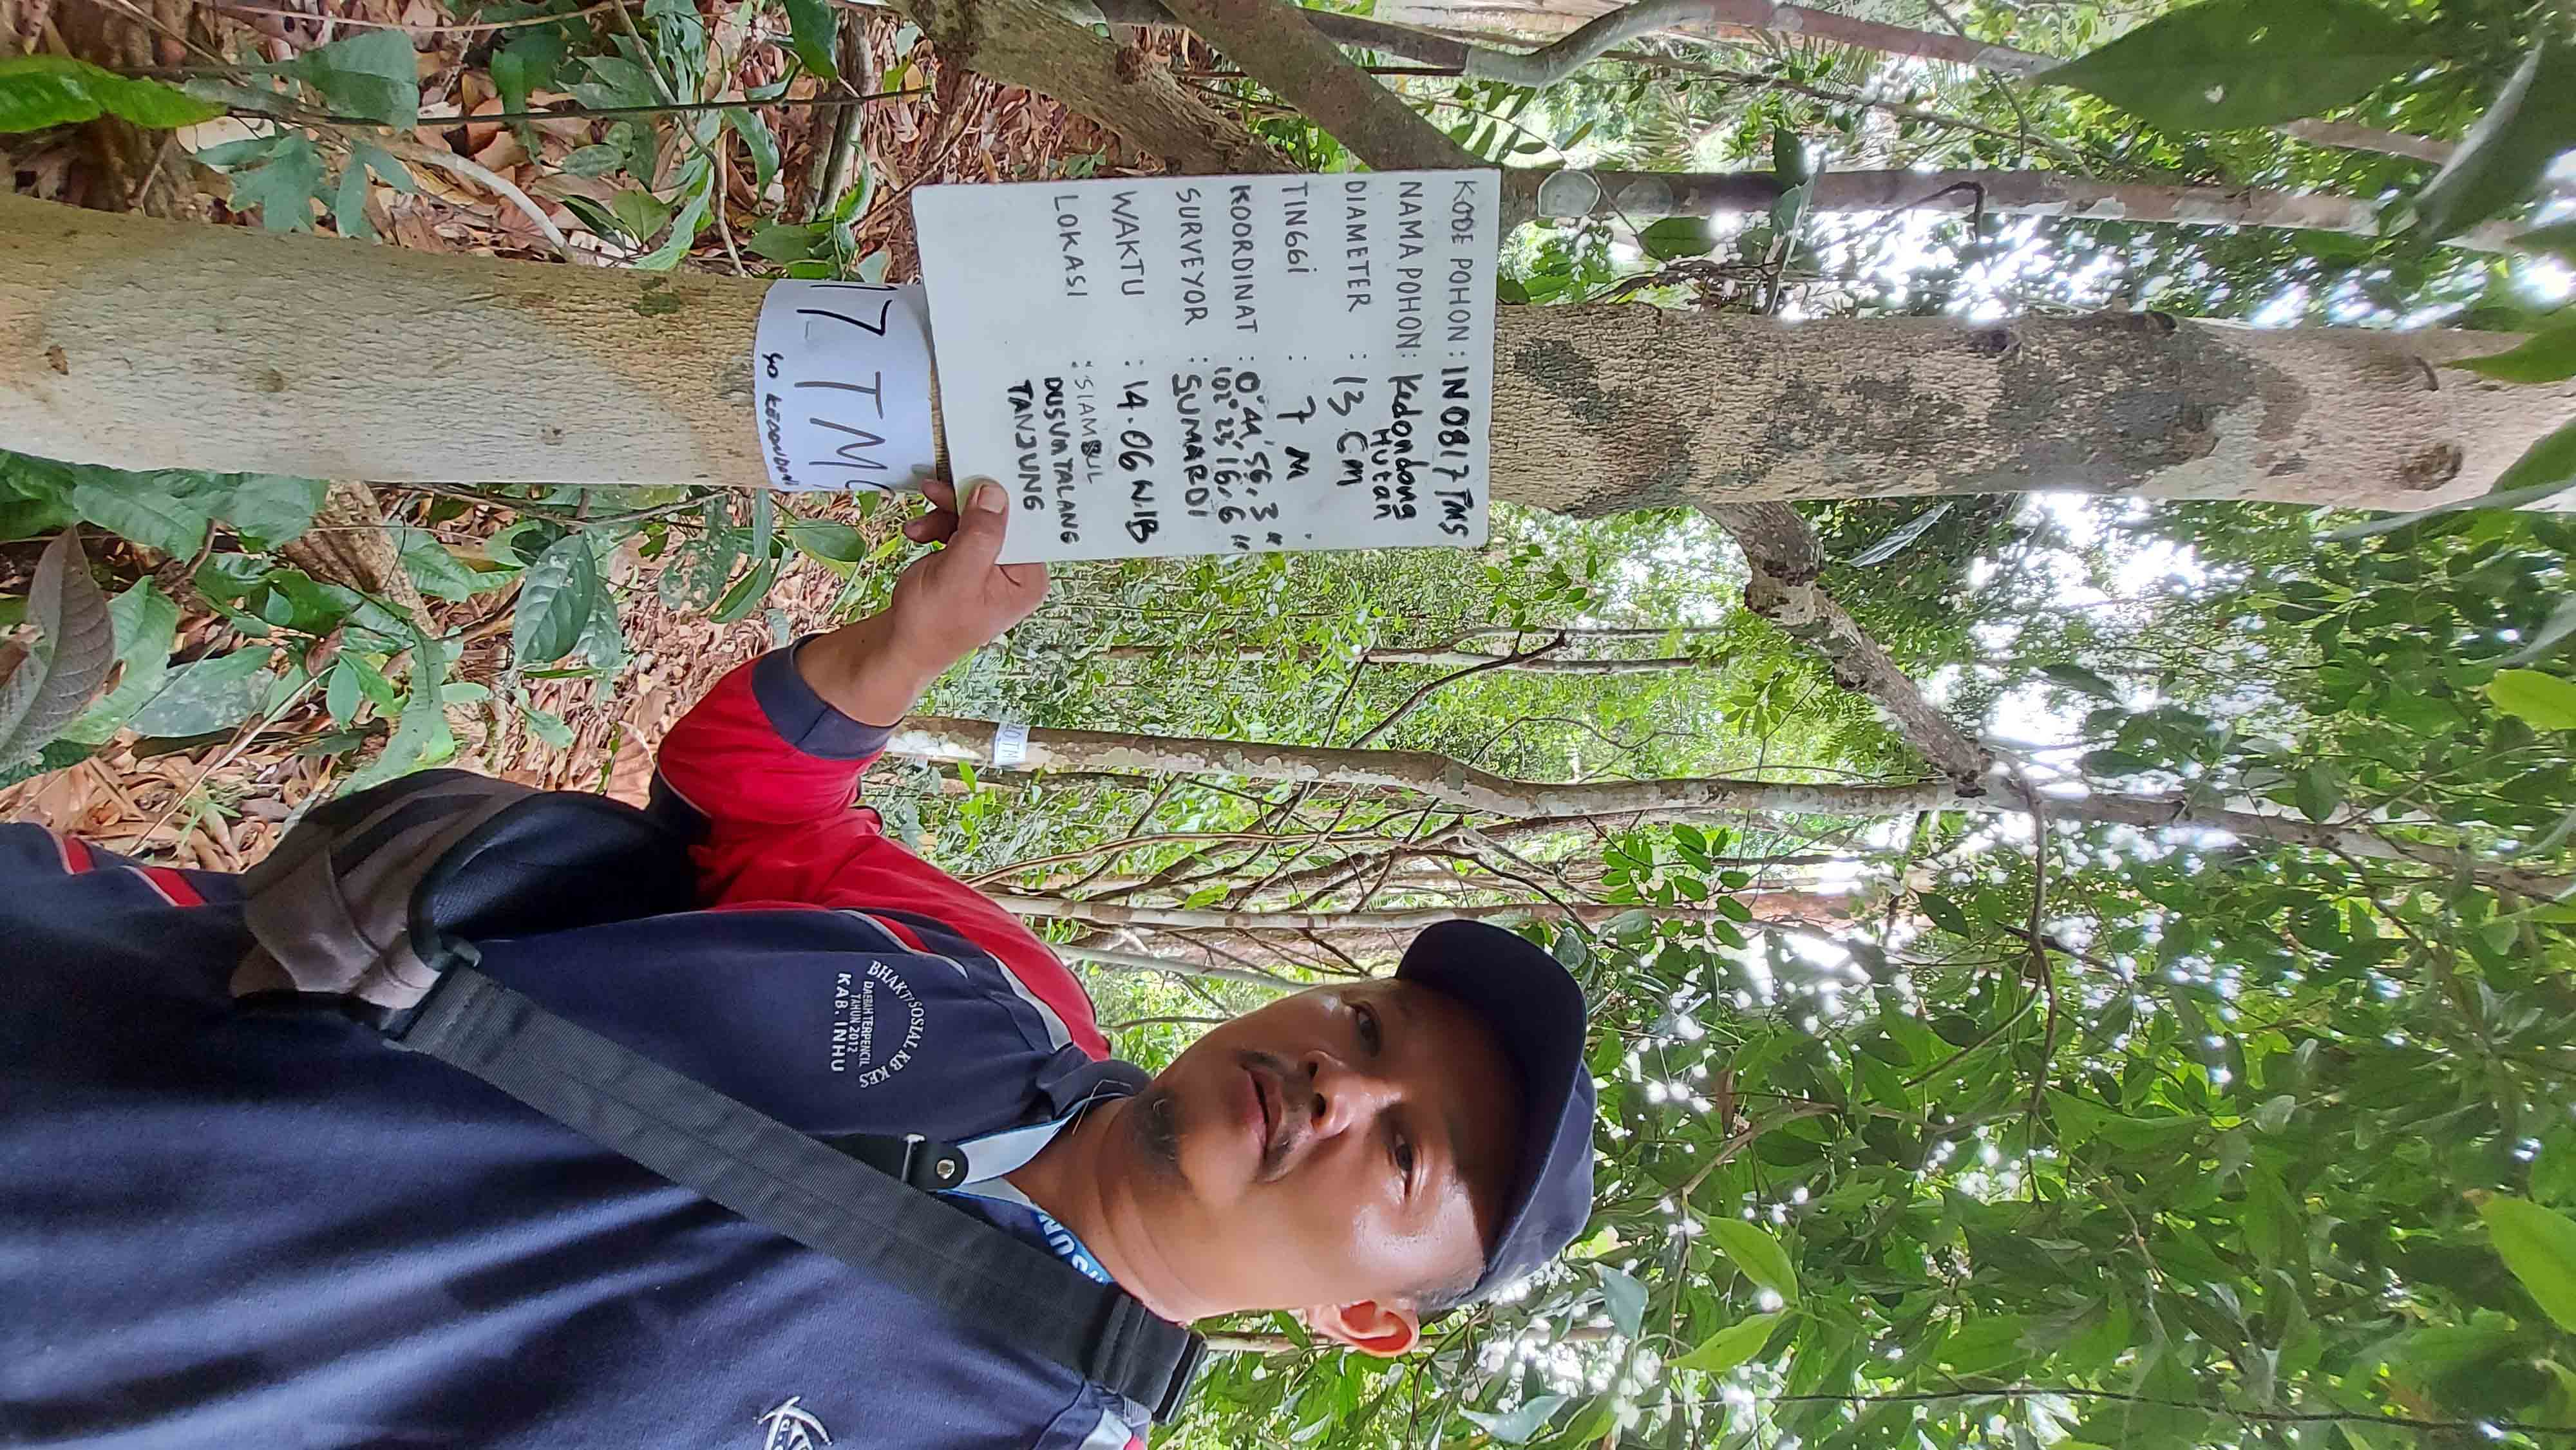 KODE POHON : IN0817 TMS
NAMA POHON : Kedondong
Hutan
DIAMETER : 13 CM
TINGGI : 7 M
KOORDINAT : 0°44'56,3"
102°23'16,6"
SURVEYOR : SUMARDI
WAKTU : 14.06 WIB
LOKASI : SIAMBUL
DUSUN TALANG
TANJUNG
17 TM
BHAKTI SOSIAL KB KES
DAERAH TERPENCIL
TAHUN 2012
KAB. INHU